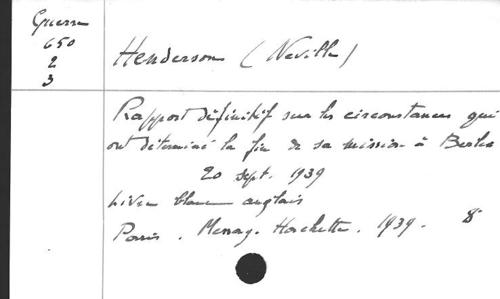 Guerre
650
2
3
Henderson (Neville)
Rapport définitif sur les circonstances qui
ont déterminé la fin de sa mission à Berlin
20 sept. 1939
Livre blanc anglais
Paris. Messag. Hachette. 1939. 8°